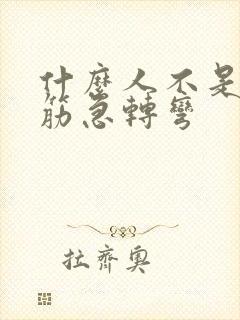 什麼人不是
筋急轉彎
拉齊奧